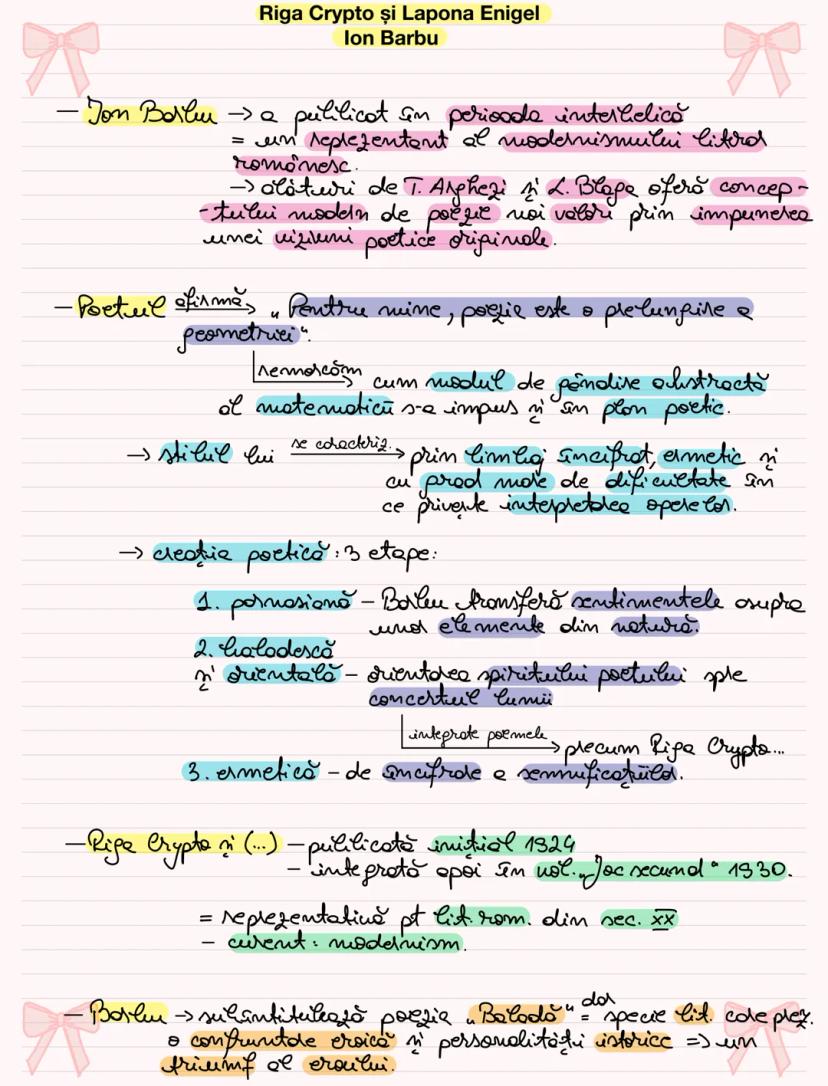 Riga Crypto și Lapona Enigel
Ion Barbu
— Ion Barbu → a publicat în perioada interbelică
= un reprezentant al modernismului literar
românesc.
→ alături de T. Arghezi și L. Blaga oferă concep-
-tului modern de poezie noi valori prin impunerea
unei viziuni poetice originale.
— Poetul afirmă → „Pentru mine, poezia este o prelungire a
geometriei".
remarcăm → cum modul de gândire abstractă
al matematicii s-a impus și în plan poetic.
→ stilul lui se caracteriz. → prin limbaj încifrat, ermetic și
cu grad mare de dificultate în
ce privește interpretarea operelor.
→ creația poetică: 3 etape:
1. parnasiană – Barbu transferă sentimentele asupra
unor elemente din natură.
2. baladescă
și orientală – orientarea spiritului poetului spre
concertul lumii
integrate poemele → precum Riga Crypto...
3. ermetică – de încifrare a semnificațiilor.
— Riga Crypto și (...) – publicată inițial 1924
– integrată apoi în vol. „Joc secund" 1930.
= reprezentativă pt lit. rom. din sec. XX
– curent: modernism.
— Barbu → subîntitulează poezia „Baladă" dar = specie lit. care prez.
o confruntare eroică și personalități istorice => un
triumf al eroului.